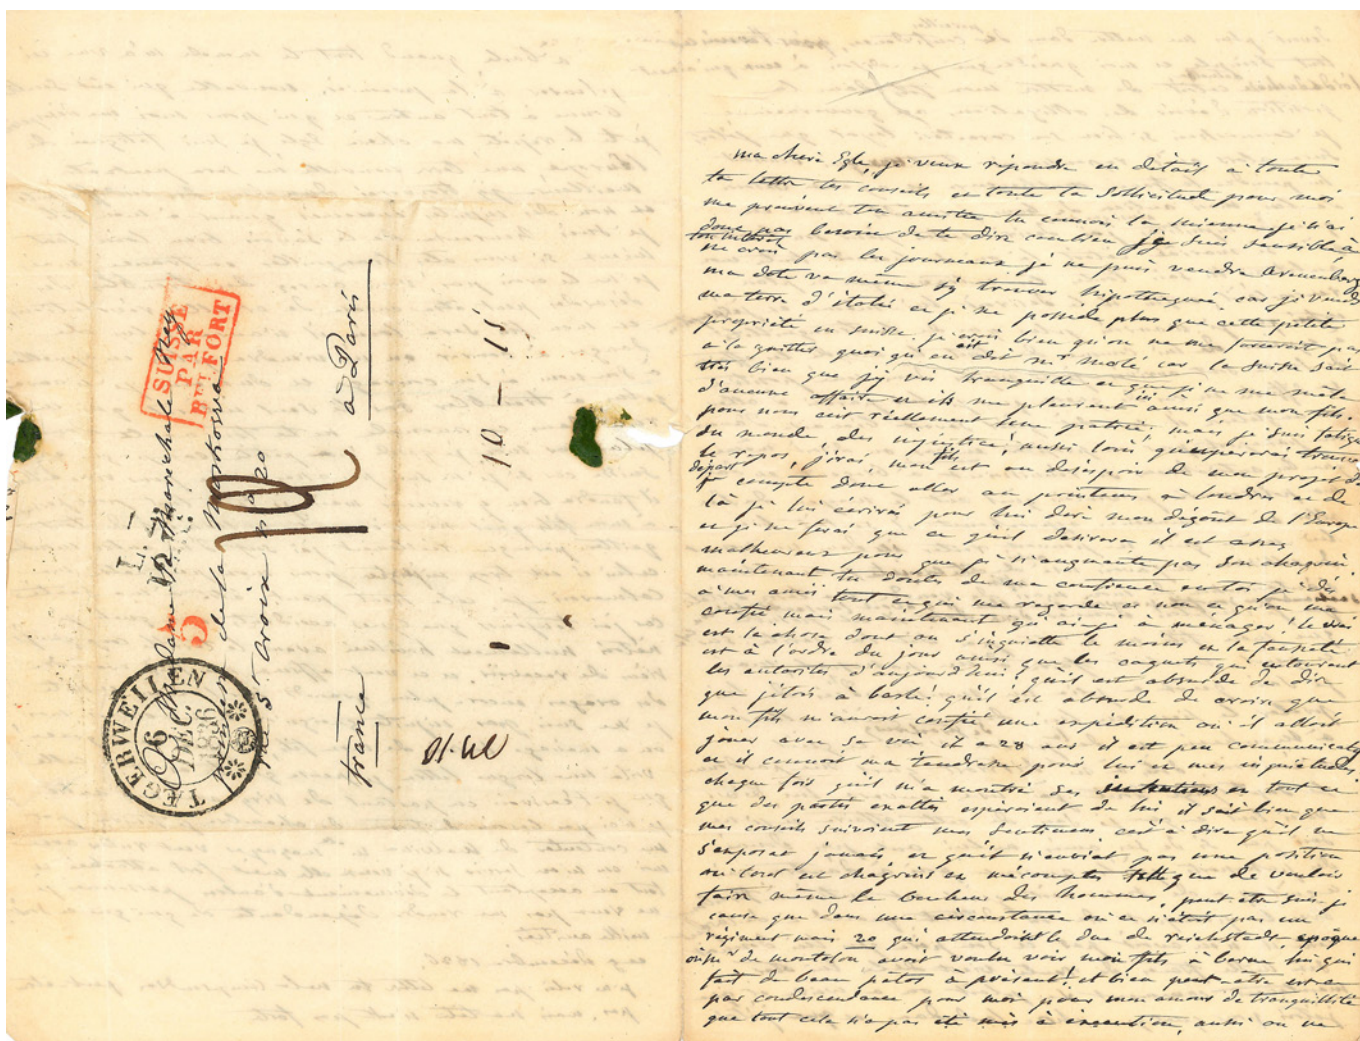 Madame la Maréchale Ney
Princesse de la Moskowa
rue Ste Croix n° 20
à Paris
france
SUISSE
PAR
BELFORT
TÆGERWEILEN
6
DEC.
1836
5
10 – 15
ma chère Egle, je veux répondre en détail à toute
ta lettre tes conseils et toute ta sollicitude pour moi
me prouvent ton amitié tu connois la mienne je n'ai
donc pas besoin de te dire combien je suis sensible à
ton intérêt
ne crois pas les journeaux je ne puis vendre Arenenberg
ma dote va même s'y trouver hipothequé car je vends
ma terre d'italie et je ne possede plus que cette petite
propriété en suisse. je crois bien qu'on ne me forceroit pas
à la quitter quoi qu'en dit mr molé car la suisse sait
très bien que j'y vis tranquille et que je ne me mêle
d'aucune affaire et ils me pleurent ainsi que mon fils.
pour nous c'est réellement une patrie. mais je suis fatiguée
du monde, des injustices, aussi loin qu'il
le repos, j'irai, mon fils est au désespoir de mon projet de
départ
je compte donc aller au printems à londres et de
là je lui écrirai pour lui dire mon dégoût de l'Europe
et je ne ferai que ce qu'il desirera il est assez
malheureux pour que je n'augmente pas son chagrin.
maintenant tu doutes de ma confiance en toi je dis
à mes amis tout ce qui me regarde et non ce qu'on me
confie mais maintenant qu'ai-je à ménager! le vrai
est la chose dont on s'inquiette le moins et la fausseté
est à l'ordre du jour ainsi que les caquets qui entourent
les autorités d'aujourd'hui, qu'il est absurde de dire
que j'étois à basle! qu'il est absurde de croire que
mon fils m'auroit confié une expédition où il alloit
jouer avec sa vie, il a 28 ans il est peu communicatif
et il connoit ma tendresse pour lui et mes inquietudes.
chaque fois qu'il m'a montré ses intentions et tout ce
que des partis exaltés espéroient de lui il sait bien que
mes conseils suivoient mes sentimens c'est à dire qu'il ne
s'exposat jamais et qu'il n'enviat pas une position
où tout est chagrins et mécomptes telle que de vouloir
faire même le bonheur des hommes, peut-etre suis-je
cause que dans une circonstance où ce n'étoit pas un
régiment mais 20 qui attendoient le duc de reichstadt époque
où mr de montolon avoit voulu voir mon fils à berne lui qui
fait de beau à présent! et bien peut-être est-ce
par condescendance pour moi pour mon amour de tranquillité
que tout cela n'a pas été mis à execution, aussi on ne